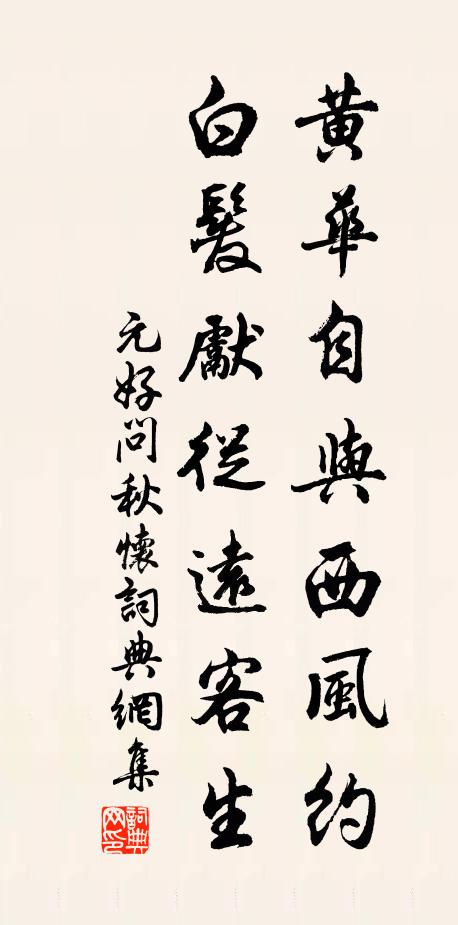 黃華自與西風約
白髮獻從遠客生
元好問秋懷詞典網集
詞典网印